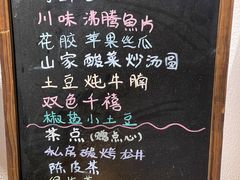 川味沸腾魚片
花胶苹果丝瓜
山家酸菜炒汤圆
土豆炖牛腩
双色千禧
椒盐小土豆
茶点(點心)
私房酸烤松井
陈皮茶